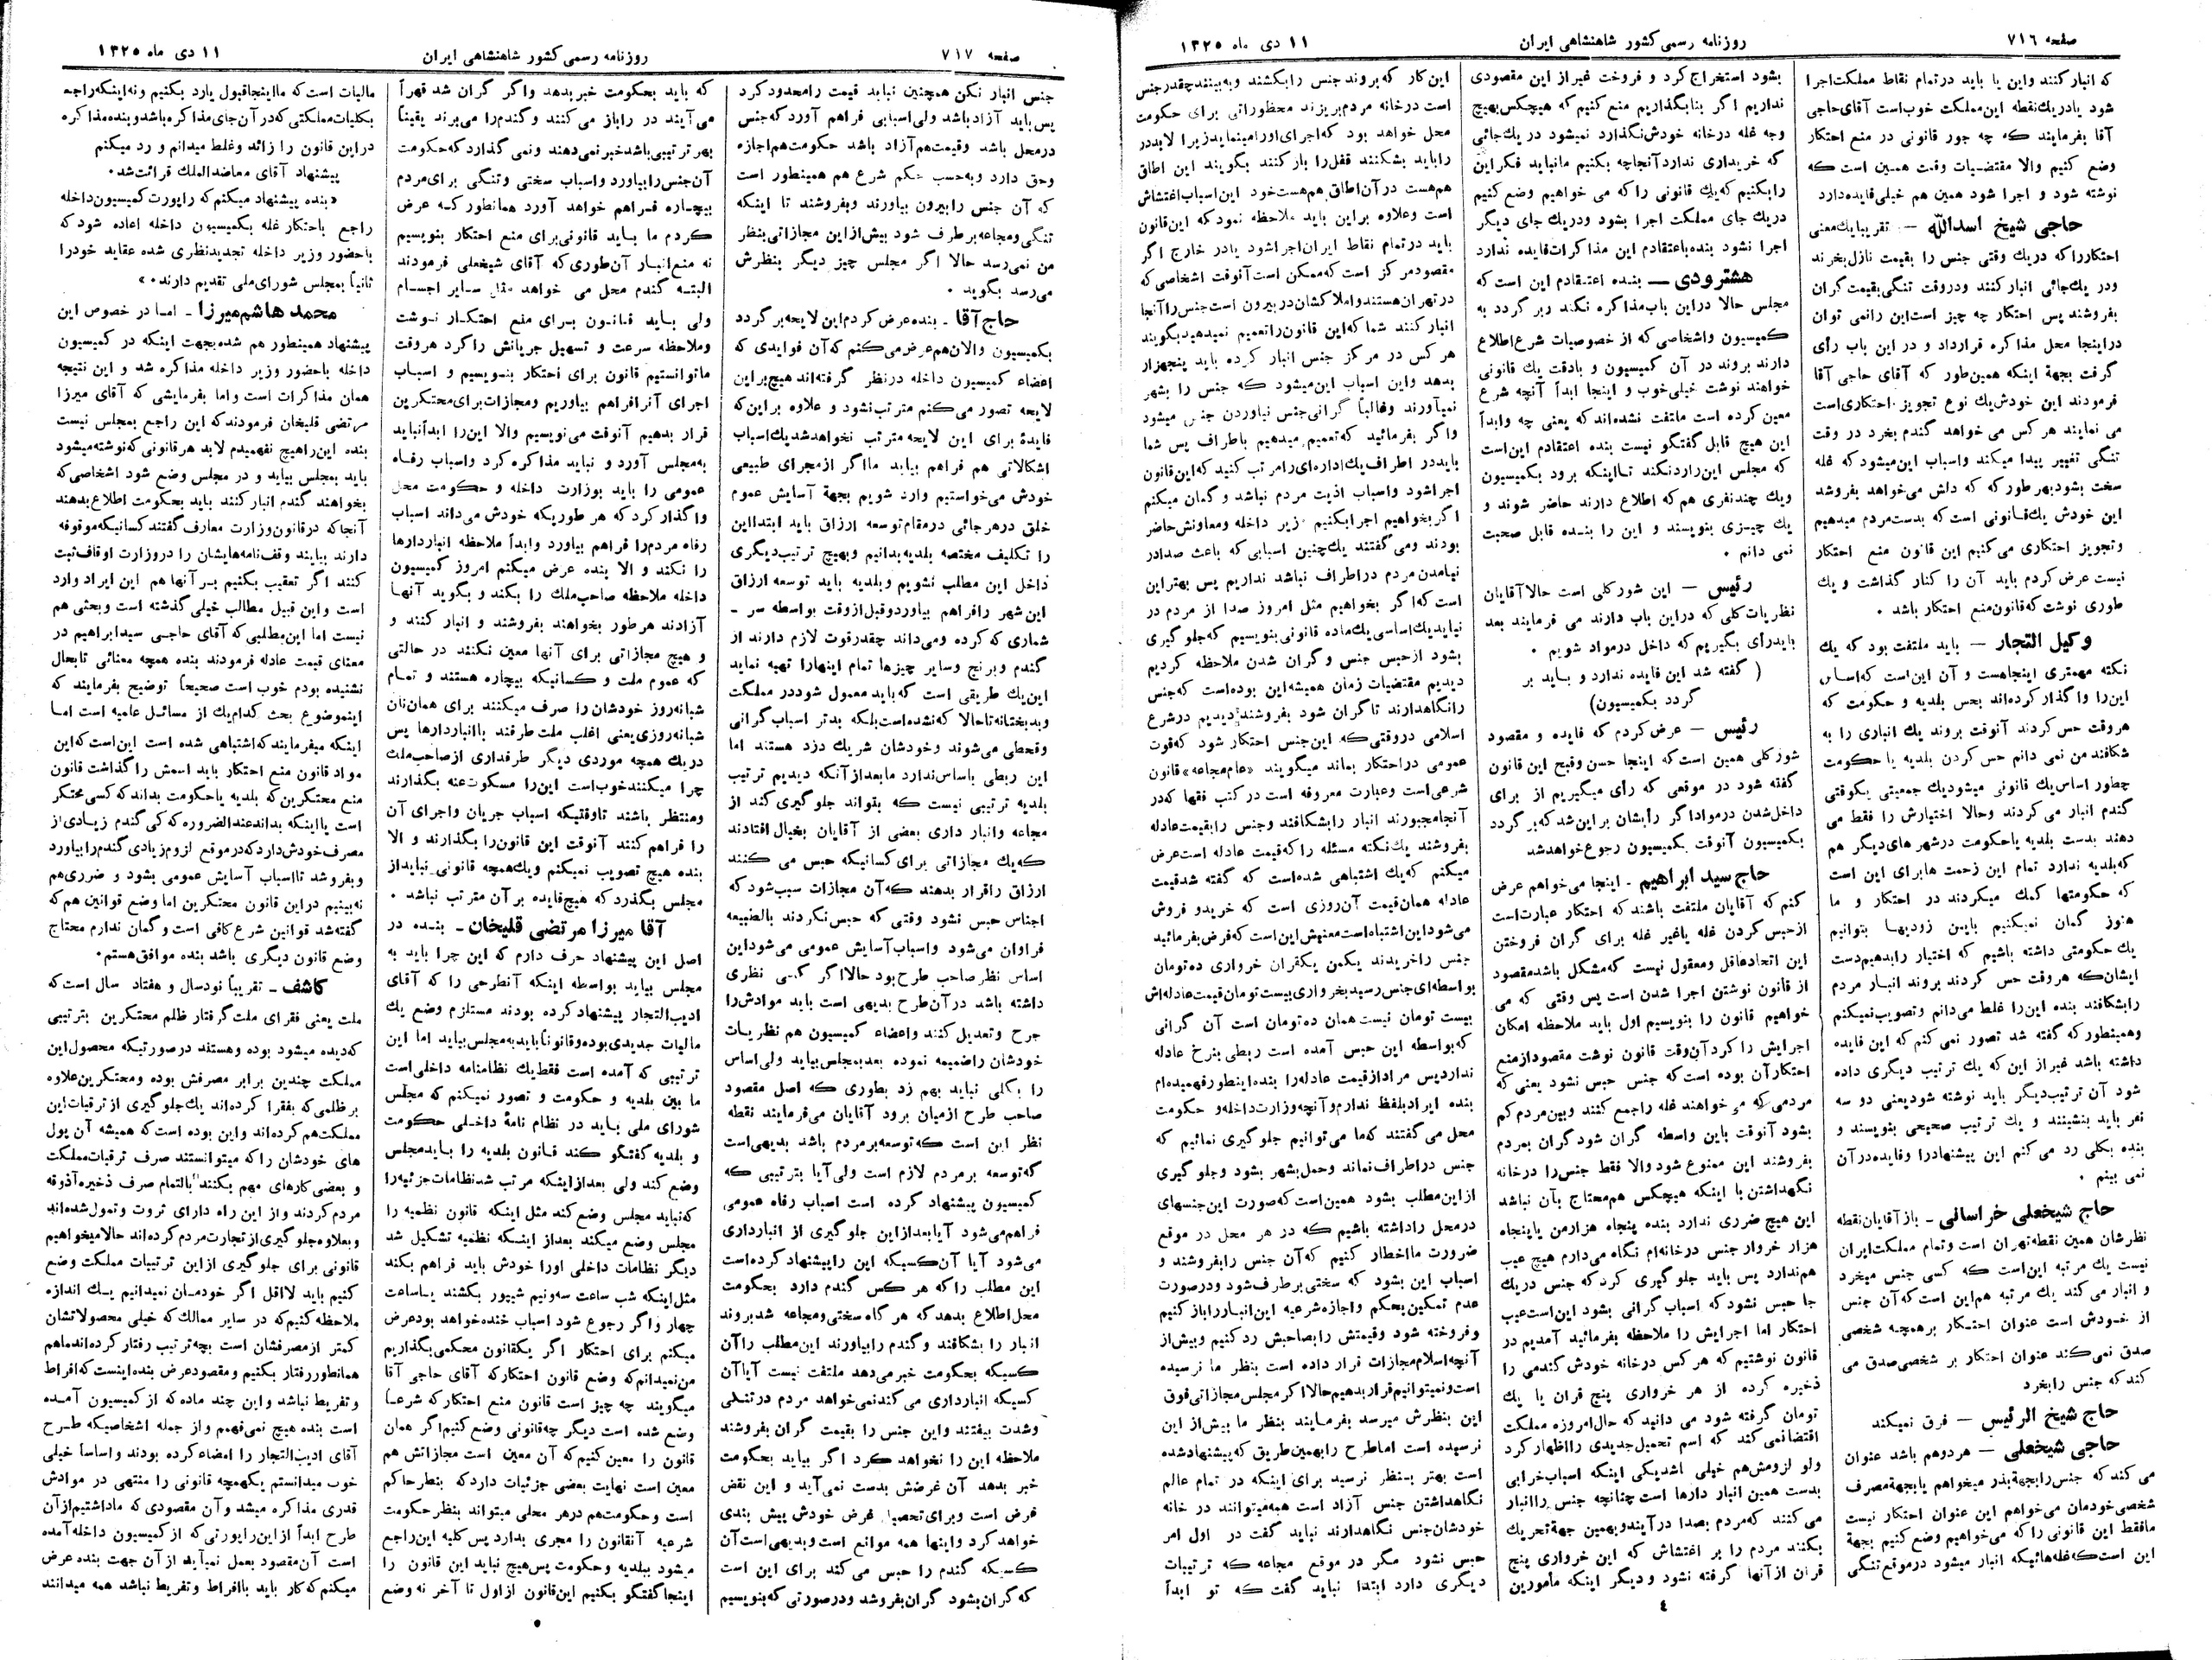 صفحه ۷۱۶
روزنامه رسمی کشور شاهنشاهی ایران
۱۱ دی ماه ۱۳۲۵
که انبار کنند واین یا باید درتمام نقاط مملکت اجرا
شود یادریك نقطه این مملکت خوب است آقای حاجی
آقا بفرمایند که چه جور قانونی در منع احتکار
وضع کنیم والا مقتضیات وقت همین است که
نوشته شود و اجرا شود همین هم خیلی فایده دارد
حاجی شیخ اسدالله — تقریبا یك معنی
احتکار را که دریك وقتی جنس را بقیمت نازل بخرند
ودر یك جائی انبار کنند ودروقت تنگی بقیمت گران
بفروشند پس احتکار چه چیز است این رانمی توان
دراینجا محل مذاکره قرارداد و در این باب رأی
گرفت بجهة اینکه همین طور که آقای حاجی آقا
فرمودند این خودش یك نوع تجویز احتکاری است
می نمایند هر کس می خواهد گندم بخرد در وقت
تنگی تغییر پیدا میکند واسباب این میشود که غله
سخت بشود بهر طور که که دلش می خواهد بفروشد
این خودش یك قانونی است که بدست مردم میدهیم
وتجویز احتکاری می کنیم این قانون منع احتکار
نیست عرض کردم باید آن را کنار گذاشت و یك
طوری نوشت که قانون منع احتکار باشد .
وکیل التجار — باید ملتفت بود که یك
نکته مهمتری اینجاهست و آن این است که اساس
این را واگذار کرده اند بحس بلدیه و حکومت که
هروقت حس کردند آنوقت بروند یك انباری را به
شکافند من نمی دانم حس کردن بلدیه یا حکومت
چطور اساس یك قانونی میشود یك جمعیتی بکوقتی
گندم انبار می کردند وحالا اختیارش را فقط می
دهند بدست بلدیه یا حکومت درشهر های دیگر هم
که بلدیه ندارد تمام این زحمت ها برای این است
که حکومتها کمك میکردند در احتکار و ما
هنوز گمان نمیکنیم باین زودیها بتوانیم
یك حکومتی داشته باشیم که اختیار را بدهیم دست
ایشان که هروقت حس کردند بروند انبار مردم
را بشکافند بنده این را غلط می دانم وتصویب نمیکنم
وهمینطور که گفته شد تصور نمی کنم که این فایده
داشته باشد غیر از این که یك ترتیب دیگری داده
شود آن ترتیب دیگر باید نوشته شود یعنی دو سه
نفر باید بنشینند و یك ترتیب صحیحی بنویسند و
بنده بکلی رد می کنم این پیشنهاد را وفایده در آن
نمی بینم .
حاج شیخعلی خراسانی ـ باز آقایان نقطه
نظرشان همین نقطه تهران است وتمام مملکت ایران
نیست یك مرتبه این است که کسی جنس میخرد
و انبار می کند یك مرتبه هم این است که آن جنس
از خودش است عنوان احتکار بر همچه شخصی
صدق نمی کند عنوان احتکار بر شخصی صدق می
کند که جنس را بخرد
حاج شیخ الرئیس — فرق نمیکند
حاجی شیخعلی — هر دوهم باشد عنوان
می کند که جنس را بجهة بذر میخواهم یا بجهة مصرف
شخصی خودمان می خواهم این عنوان احتکار نیست
مافقط این قانونی را که می خواهیم وضع کنیم بجهة
این است که غله هائیکه انبار میشود در موقع تنگی
بشود استخراج کرد و فروخت غیر از این مقصودی
نداریم اگر بنابگذاریم منع کنیم که هیچکس بهیچ
وجه غله درخانه خودش نگذارد نمیشود در یك جائی
که خریداری ندارد آنجا چه بکنیم مانباید فکر این
را بکنیم که یك قانونی را که می خواهیم وضع کنیم
دریك جای مملکت اجرا بشود ودریك جای دیگر
اجرا نشود بنده باعتقادم این مذاکرات فایده ندارد
هشترودی — بنده اعتقادم این است که
مجلس حالا دراین باب مذاکره نکند زیر گردد به
کمیسیون واشخاصی که از خصوصیات شرع اطلاع
دارند بروند در آن کمیسیون و بادقت یك قانونی
خواهند نوشت خیلی خوب و اینجا ابداً آنچه شرع
معین کرده است ملتفت نشده اند که یعنی چه وابداً
این هیچ قابل گفتگو نیست بنده اعتقادم این است
که مجلس این را رد نکند تا اینکه برود بکمیسیون
ویك چند نفری هم که اطلاع دارند حاضر شوند و
یك چیزی بنویسند و این را بنده قابل صحبت
نمی دانم .
رئیس — این شور کلی است حالا آقایان
نظریات کلی که دراین باب دارند می فرمایند بعد
باید رأی بگیریم که داخل درمواد شویم .
( گفته شد این فایده ندارد و باید بر
گردد بکمیسیون)
رئیس — عرض کردم که فایده و مقصود
شور کلی همین است که اینجا حسن وقبح این قانون
گفته شود در موقعی که رأی میگیریم از برای
داخل شدن درمواد اگر رأیشان بر این شد که بر گردد
بکمیسیون آنوقت بکمیسیون رجوع خواهد شد
حاج سید ابراهیم ـ اینجا می خواهم عرض
کنم که آقایان ملتفت باشند که احتکار عبارت است
از حبس کردن غله یا غیر غله برای گران فروختن
این اتحاد عاقل ومعقول نیست که مشکل باشد مقصود
از قانون نوشتن اجرا شدن است پس وقتی که می
خواهیم قانون را بنویسیم اول باید ملاحظه امکان
اجرایش را کرد آن وقت قانون نوشت مقصود از منع
احتکار آن بوده است که جنس حبس نشود یعنی که
مردمی که می خواهند غله را جمع کنند وبین مردم کم
بشود آنوقت باین واسطه گران شود گران بمردم
بفروشند این ممنوع شود والا فقط جنس را درخانه
نگهداشتن با اینکه هیچکس هم محتاج بآن نباشد
این هیچ ضرری ندارد بنده پنجاه هزار من یا پنجاه
هزار خروار جنس درخانه ام نگاه می دارم هیچ عیب
هم ندارد پس باید جلو گیری کرد که جنس دریك
جا حبس نشود که اسباب گرانی بشود این است عیب
احتکار اما اجرایش را ملاحظه بفرمائید آمدیم در
قانون نوشتیم که هر کس درخانه خودش گندمی را
ذخیره کرده از هر خرواری پنج قران یا یك
تومان گرفته شود می دانید که حال امروزه مملکت
اقتضا نمی کند که اسم تحمیل جدیدی را اظهار کرد
ولو لزومش هم خیلی اشد یکی اینکه اسباب خرابی
بدست همین انبار دارها است چنانچه جنس را انبار
می کنند که مردم بصدا در آیند وبهمین جهة تحریك
بکنند مردم را بر اغتشاش که این خرواری پنج
قران از آنها گرفته نشود و دیگر اینکه مأمورین
این کار که بروند جنس را بکشند و به بینند چقدر جنس
است درخانه مردم بریزند محظوراتی برای حکومت
محل خواهد بود که اجرای او را مینماید زیرا لابد در
را باید بشکنند قفل را باز کنند بگویند این اطاق
هم هست در آن اطاق هم هست خود این اسباب اغتشاش
است وعلاوه بر این باید ملاحظه نمود که این قانون
باید در تمام نقاط ایران اجرا شود یا در خارج اگر
مقصود مرکز است که ممکن است آنوقت اشخاصی که
در تهران هستند و املاکشان در بیرون است جنس را آنجا
انبار کنند شما که این قانون را تعمیم نمیدهید بگویند
هر کس در مرکز جنس انبار کرده باید پنجهزار
بدهد واین اسباب این میشود که جنس را بشهر
نمیآورند وغالباً گرانی جنس نیاوردن جنس میشود
واگر بفرمائید که تعمیم میدهیم باطراف پس شما
باید در اطراف یك اداره ای را مرتب کنید که این قانون
اجرا شود واسباب اذیت مردم نباشد و گمان میکنم
اگر بخواهیم اجرا بکنیم وزیر داخله ومعاونش حاضر
بودند ومی گفتند یك چنین اسبابی که باعث صدا در
نیامدن مردم در اطراف نباشد نداریم پس بهتر این
است که اگر بخواهیم مثل امروز صدا از مردم در
نیاید یك اساسی یك ماده قانونی بنویسیم که جلوگیری
بشود از حبس جنس و گران شدن ملاحظه کردیم
دیدیم مقتضیات زمان همیشه این بوده است که جنس
را نگاهدارند تا گران شود بفروشند دیدیم در شرع
اسلامی دروقتی که این جنس احتکار شود که قوت
عمومی در احتکار بماند میگویند «عام مجاعه» قانون
شرعی است وعبارت معروفه است در کتب فقها که در
آنجا مجبورند انبار را بشکافند وجنس را بقیمت عادله
بفروشند یك نکته مسئله را که قیمت عادله است عرض
میکنم که یك اشتباهی شده است که گفته شد قیمت
عادله همان قیمت آن روزی است که خرید و فروش
می شود این اشتباه است معنیش این است که فرض بفرمائید
جنس را خریدند یکمن یکقران خرواری ده تومان
بواسطه ای جنس رسید بخرواری بیست تومان قیمت عادله اش
بیست تومان نیست همان ده تومان است آن گرانی
که بواسطه این حبس آمده است ربطی بنرخ عادله
ندارد پس مراد از قیمت عادله را بنده اینطور فهمیده ام
بنده ایراد بلفظ ندارم و آنچه وزارت داخله و حکومت
محل می گفتند که ما می توانیم جلو گیری نمائیم که
جنس در اطراف نماند وحمل بشهر بشود وجلو گیری
از این مطلب بشود همین است که صورت این جنسهای
در محل را داشته باشیم که در هر محل در موقع
ضرورت ما اخطار کنیم که آن جنس را بفروشند و
اسباب این بشود که سختی بر طرف شود ودرصورت
عدم تمکین بحکم واجازه شرعیه این انبار را باز کنیم
وفروخته شود وقیمتش را بصاحبش رد کنیم وبیش از
آنچه اسلام مجازات قرار داده است بنظر ما نرسیده
است ونمیتوانیم قرار بدهیم حالا اگر مجلس مجازاتی فوق
این بنظرش میرسد بفرمایند بنظر ما بیش از این
نرسیده است اما طرح را بهمین طریق که پیشنهاد شده
است بهتر بنظر نرسید برای اینکه در تمام عالم
نگاهداشتن جنس آزاد است همه میتوانند در خانه
خودشان جنس نگاهدارند نباید گفت در اول امر
حبس نشود مگر در موقع مجاعه که ترتیبات
دیگری دارد ابتدا نباید گفت که تو ابداً
٤
صفحه ۷۱۷
روزنامه رسمی کشور شاهنشاهی ایران
۱۱ دی ماه ۱۳۲۵
جنس انبار نکن همچنین نباید قیمت را محدود کرد
پس باید آزاد باشد ولی اسبابی فراهم آورد که جنس
درمحل باشد وقیمت هم آزاد باشد حکومت هم اجازه
وحق دارد وبه حسب حکم شرع هم همینطور است
که آن جنس را بیرون بیاورند وبفروشند تا اینکه
تنگی ومجاعه بر طرف شود بیش از این مجازاتی بنظر
من نمی رسد حالا اگر مجلس چیز دیگر بنظرش
می رسد بگوید .
حاج آقا ـ بنده عرض کردم این لایحه بر گردد
بکمیسیون والان هم عرض می کنم که آن فوایدی که
اعضاء کمیسیون داخله درنظر گرفته اند هیچ بر این
لایحه تصور می کنم مترتب نشود و علاوه بر این که
فایدۀ برای این لایحه مترتب نخواهد شد یك اسباب
اشکالاتی هم فراهم بیاید ما اگر از مجرای طبیعی
خودش می خواستیم وارد شویم بجهة آسایش عموم
خلق درهر جائی در مقام توسعه ارزاق باید ابتدا این
را تکلیف مختصه بلدیه بدانیم و بهیچ ترتیب دیگری
داخل این مطلب نشویم و بلدیه باید توسعه ارزاق
این شهر را فراهم بیاورد و قبل از وقت بواسطه سر ـ
شماری که کرده ومی داند چقدر قوت لازم دارند از
گندم وبرنج وسایر چیزها تمام اینها را تهیه نماید
این یك طریقی است که باید معمول شود در مملکت
وبدبختانه تا حالا که نشده است بلکه بدتر اسباب گرانی
وقحطی می شوند وخودشان شریك دزد هستند اما
این ربطی باساس ندارد ما بعد از آنکه دیدیم ترتیب
بلدیه ترتیبی نیست که بتواند جلو گیری کند از
مجاعه وانبار داری بعضی از آقایان بخیال افتادند
که یك مجازاتی برای کسانیکه حبس می کنند
ارزاق را قرار بدهند که آن مجازات سبب شود که
اجناس حبس نشود وقتی که حبس نکردند بالطبیعه
فراوان می شود واسباب آسایش عمومی می شود این
اساس نظر صاحب طرح بود حالا اگر کسی نظری
داشته باشد در آن طرح بدیهی است باید موادش را
جرح وتعدیل کنند واعضاء کمیسیون هم نظریات
خودشان را ضمیمه نموده بعد بمجلس بیاید ولی اساس
را بکلی نباید بهم زد بطوری که اصل مقصود
صاحب طرح از میان برود آقایان می فرمایند نقطه
نظر این است که توسعه بر مردم باشد بدیهی است
که توسعه بر مردم لازم است ولی آیا بترتیبی که
کمیسیون پیشنهاد کرده است اسباب رفاه عمومی
فراهم می شود آیا بعد از این جلو گیری از انبارداری
می شود آیا آن کسیکه این را پیشنهاد کرده است
این مطلب را که هر کس گندم دارد بحکومت
محل اطلاع بدهد که هر گاه سختی ومجاعه شد بروند
انبار را بشکافند و گندم را بیاورند این مطلب را آن
کسیکه بحکومت خبر می دهد ملتفت نیست آیا آن
کسیکه انبارداری می کند نمی خواهد مردم در تنگی
وشدت بیفتند واین جنس را بقیمت گران بفروشند
ملاحظه این را نخواهد کرد اگر بیاید بحکومت
خبر بدهد آن غرضش بدست نمی آید و این نقض
غرض است وبرای تحصیل غرض خودش پیش بندی
خواهد کرد و اینها همه موانع است وبدیهی است آن
کسیکه گندم را حبس می کند برای این است
که گران بشود گران بفروشد ودرصورتی که بنویسیم
که باید بحکومت خبر بدهد واگر گران شد قهراً
می آیند در را باز می کنند و گندم را می برند یقیناً
بهر ترتیبی باشد خبر نمی دهند ونمی گذارد که حکومت
آن جنس را بیاورد واسباب سختی وتنگی برای مردم
بیچاره فراهم خواهد آورد همانطور که عرض
کردم ما باید قانونی برای منع احتکار بنویسیم
نه منع انبار آن طوری که آقای شیخعلی فرمودند
البته گندم محل می خواهد مثل سایر اجسام
ولی باید قانون برای منع احتکار نوشت
وملاحظه سرعت و تسهیل جریانش را کرد هر وقت
ما توانستیم قانون برای احتکار بنویسیم و اسباب
اجرای آنرا فراهم بیاوریم ومجازات برای محتکرین
قرار بدهیم آنوقت می نویسیم والا این را ابداً نباید
به مجلس آورد و نباید مذاکره کرد واسباب رفاه
عمومی را باید بوزارت داخله و حکومت محل
واگذار کرد که هر طوریکه خودش می داند اسباب
رفاه مردم را فراهم بیاورد وابداً ملاحظه انباردارها
را نکند و الا بنده عرض میکنم امروز کمیسیون
داخله ملاحظه صاحب ملك را بکند و بگوید آنها
آزادند هر طور بخواهند بفروشند و انبار کنند و
و هیچ مجازاتی برای آنها معین نکنند در حالتی
که عموم ملت و کسانیکه بیچاره هستند و تمام
شبانه روز خودشان را صرف میکنند برای همان نان
شبانه روزی یعنی اغلب ملت طرفند با انباردارها پس
دریك همچه موردی دیگر طرفداری از صاحب ملك
چرا میکنند خوب است این را مسکوت عنه بگذارند
ومنتظر باشند تا وقتیکه اسباب جریان واجرای آن
را فراهم کنند آنوقت این قانون را بگذارند و الا
بنده هیچ تصویب نمیکنم ویك همچه قانونی نباید از
مجلس بگذرد که هیچ فایده بر آن مترتب نباشد .
آقا میرزا مرتضی قلیخان ـ بنده در
اصل این پیشنهاد حرف دارم که این چرا باید به
مجلس بیاید بواسطه اینکه آنطرحی را که آقای
ادیب التجار پیشنهاد کرده بودند مستلزم وضع یك
مالیات جدیدی بوده وقانوناً باید به مجلس بیاید اما این
ترتیبی که آمده است فقط یك نظامنامه داخلی است
ما بین بلدیه و حکومت و تصور نمیکنم که مجلس
شورای ملی باید در نظام نامۀ داخلی حکومت
و بلدیه گفتگو کند قانون بلدیه را باید مجلس
وضع کند ولی بعد از اینکه مرتب شد نظامات جزئیه را
که نباید مجلس وضع کند مثل اینکه قانون نظمیه را
مجلس وضع میکند بعد از اینکه نظمیه تشکیل شد
دیگر نظامات داخلی او را خودش باید فراهم بکند
مثل اینکه شب ساعت سه ونیم شیپور بکشند یا ساعت
چهار واگر رجوع شود اسباب خنده خواهد بود عرض
میکنم برای احتکار اگر یکقانون محکمی بگذاریم
من نمیدانم که وضع قانون احتکار که آقای حاجی آقا
میگویند چه چیز است قانون منع احتکار که شرعاً
وضع شده است دیگر چه قانونی وضع کنیم اگر همان
قانون را معین کنیم که آن معین است مجازاتش هم
معین است نهایت بعضی جزئیات دارد که بنظر حاکم
است وحکومت هم درهر محلی میتواند بنظر حکومت
شرعیه آنقانون را مجری بدارد پس کلیه این راجع
میشود ببلدیه وحکومت پس هیچ نباید این قانون را
اینجا گفتگو بکنیم این قانون از اول تا آخر نه وضع
مالیات است که ما اینجا قبول یا رد بکنیم و نه اینکه راجع
بکلیات مملکتی که در آن جای مذاکره باشد و بنده مذاکره
دراین قانون را زائد وغلط میدانم و رد میکنم
پیشنهاد آقای معاضدالملك قرائت شد.
«بنده پیشنهاد میکنم که راپورت کمیسیون داخله
راجع باحتکار غله بکمیسیون داخله اعاده شود که
باحضور وزیر داخله تجدید نظری شده عقاید خود را
ثانیاً بمجلس شورای ملی تقدیم دارند.»
محمد هاشم میرزا ـ اما در خصوص این
پیشنهاد همینطور هم شده بجهت اینکه در کمیسیون
داخله باحضور وزیر داخله مذاکره شد و این نتیجه
همان مذاکرات است واما بفرمایشی که آقای میرزا
مرتضی قلیخان فرمودند که این راجع بمجلس نیست
بنده این راهیچ نفهمیدم لابد هر قانونی که نوشته میشود
باید بمجلس بیاید و در مجلس وضع شود اشخاصی که
بخواهند گندم انبار کنند باید بحکومت اطلاع بدهند
آنجا که در قانون وزارت معارف گفتند کسانیکه موقوفه
دارند بیایند وقف نامه هایشان را دروزارت اوقاف ثبت
کنند اگر تعقیب بکنیم بر آنها هم این ایراد وارد
است واین قبیل مطالب خیلی گذشته است و بحثی هم
نیست اما این مطلبی که آقای حاجی سید ابراهیم در
معنای قیمت عادله فرمودند بنده همچه معنائی تا بحال
نشنیده بودم خوب است صحیحاً توضیح بفرمایند که
اینموضوع بحث کدام یك از مسائل عامیه است اما
اینکه میفرمایند که اشتباهی شده است این است که این
مواد قانون منع احتکار باید اسمش را گذاشت قانون
منع محتکرین که بلدیه یا حکومت بداند که کسی محتکر
است یا اینکه بداند عندالضروره که کی گندم زیادی از
مصرف خودش دارد که در موقع لزوم زیادی گندم را بیاورد
وبفروشد تا اسباب آسایش عمومی بشود و ضرری هم
نه بینیم دراین قانون محتکرین اما وضع قوانین هم که
گفته شد قوانین شرع کافی است و گمان ندارم محتاج
وضع قانون دیگری باشد بنده موافق هستم.
کاشف ـ تقریباً نود سال و هفتاد سال است که
ملت یعنی فقرای ملت گرفتار ظلم محتکرین بترتیبی
که دیده میشود بوده وهستند درصورتیکه محصول این
مملکت چندین برابر مصرفش بوده و محتکرین علاوه
بر ظلمی که بفقرا کرده اند یك جلو گیری از ترقیات این
مملکت هم کرده اند واین بوده است که همیشه آن پول
های خودشان را که میتوانستند صرف ترقیات مملکت
و بعضی کارهای مهم بکنند بالتمام صرف ذخیره آذوقه
مردم کردند واز این راه دارای ثروت وتمول شده اند
وبعلاوه جلو گیری از تجارت مردم کرده اند حالا میخواهیم
قانونی برای جلو گیری از این ترتیبات مملکت وضع
کنیم باید لااقل اگر خودمان نمیدانیم یك اندازه
ملاحظه کنیم که در سایر ممالك که خیلی محصولاتشان
کمتر از مصرفشان است بچه ترتیب رفتار کرده اند ماهم
همانطور رفتار بکنیم ومقصود عرض بنده اینست که افراط
و تفریط نباشد واین چند ماده که از کمیسیون آمده
است بنده هیچ نمی فهمم و از جمله اشخاصیکه طرح
آقای ادیب التجار را امضاء کرده بودند واساساً خیلی
خوب میدانستم یکهمچه قانونی را منتهی در موادش
قدری مذاکره میشد وآن مقصودی که ما داشتیم از آن
طرح ابداً از این راپورتی که از کمیسیون داخله آمده
است آن مقصود بعمل نمیآید از آن جهت بنده عرض
میکنم که کار باید با افراط و تفریط نباشد همه میدانند